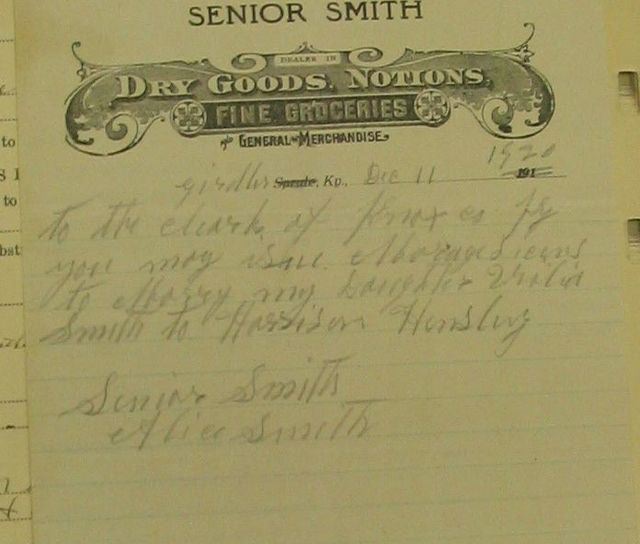 SENIOR SMITH
DEALER IN
DRY GOODS, NOTIONS,
FINE GROCERIES
AND GENERAL MERCHANDISE.
girdler Sprule, Ky., Dec 11 1920 191
to the cleark of Knox co Ky
you may isue Maragelicens
to Marry my Daughter
Smith to Harrison Hensley
Senior Smith
Alice Smith
to
to